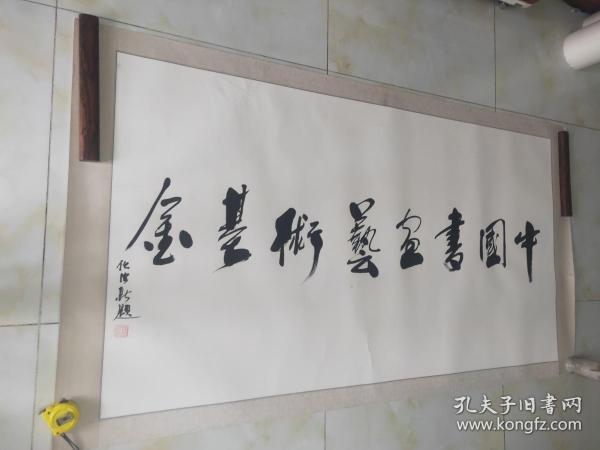 中國書画藝術基金
題
孔夫子旧书网
www.kongfz.com